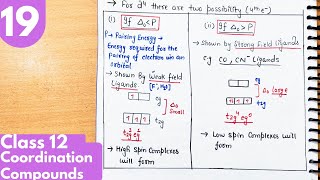 19
→ For d⁴ there are two possibility (4th e⁻)
(i) If Δo < P
P → Pairing Energy →
Energy required for the
Pairing of electron in an
orbital
→ Shown By Weak field
Ligands. [F⁻, H₂O]
eg
Δo
Small
t2g
t2g³ eg¹
→ High Spin Complexes
will form
(ii) If Δo > P
→ Shown by Strong field Ligands
eg CO, CN⁻ Ligands
eg
Δo large
t2g
t2g⁴ eg⁰
→ Low spin Complexes will
form
Class 12
Coordination
Compounds